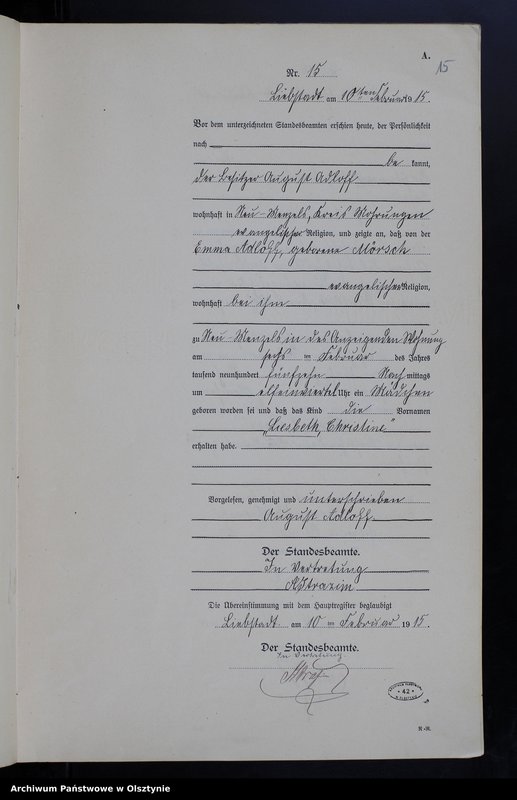 A.
15
Nr. 15
Liebstadt am 10ten Februar 1915.
Vor dem unterzeichneten Standesbeamten erschien heute, der Persönlichkeit
nach
be kannt,
der Besitzer August Adloff
wohnhaft in Neu-Menzels, Kreis Mohrungen
evangelischer Religion, und zeigte an, daß von der
Emma Adloff, geborene Mörsch
evangelischer Religion,
wohnhaft bei ihm
zu Neu Menzels in des Anzeigenden Wohnung
am sechs ten Februar des Jahres
tausend neunhundert fünfzehn Nach mittags
um elfeinviertel Uhr ein Mädchen
geboren worden sei und daß das Kind die Vornamen
„Liesbeth, Christine"
erhalten habe.
Vorgelesen, genehmigt und unterschrieben
August Adloff
Der Standesbeamte.
In Vertretung
Die Übereinstimmung mit dem Hauptregister beglaubigt
Liebstadt am 10 ten Februar 1915.
Der Standesbeamte.
In Vertretung.
42
Archiwum Państwowe w Olsztynie